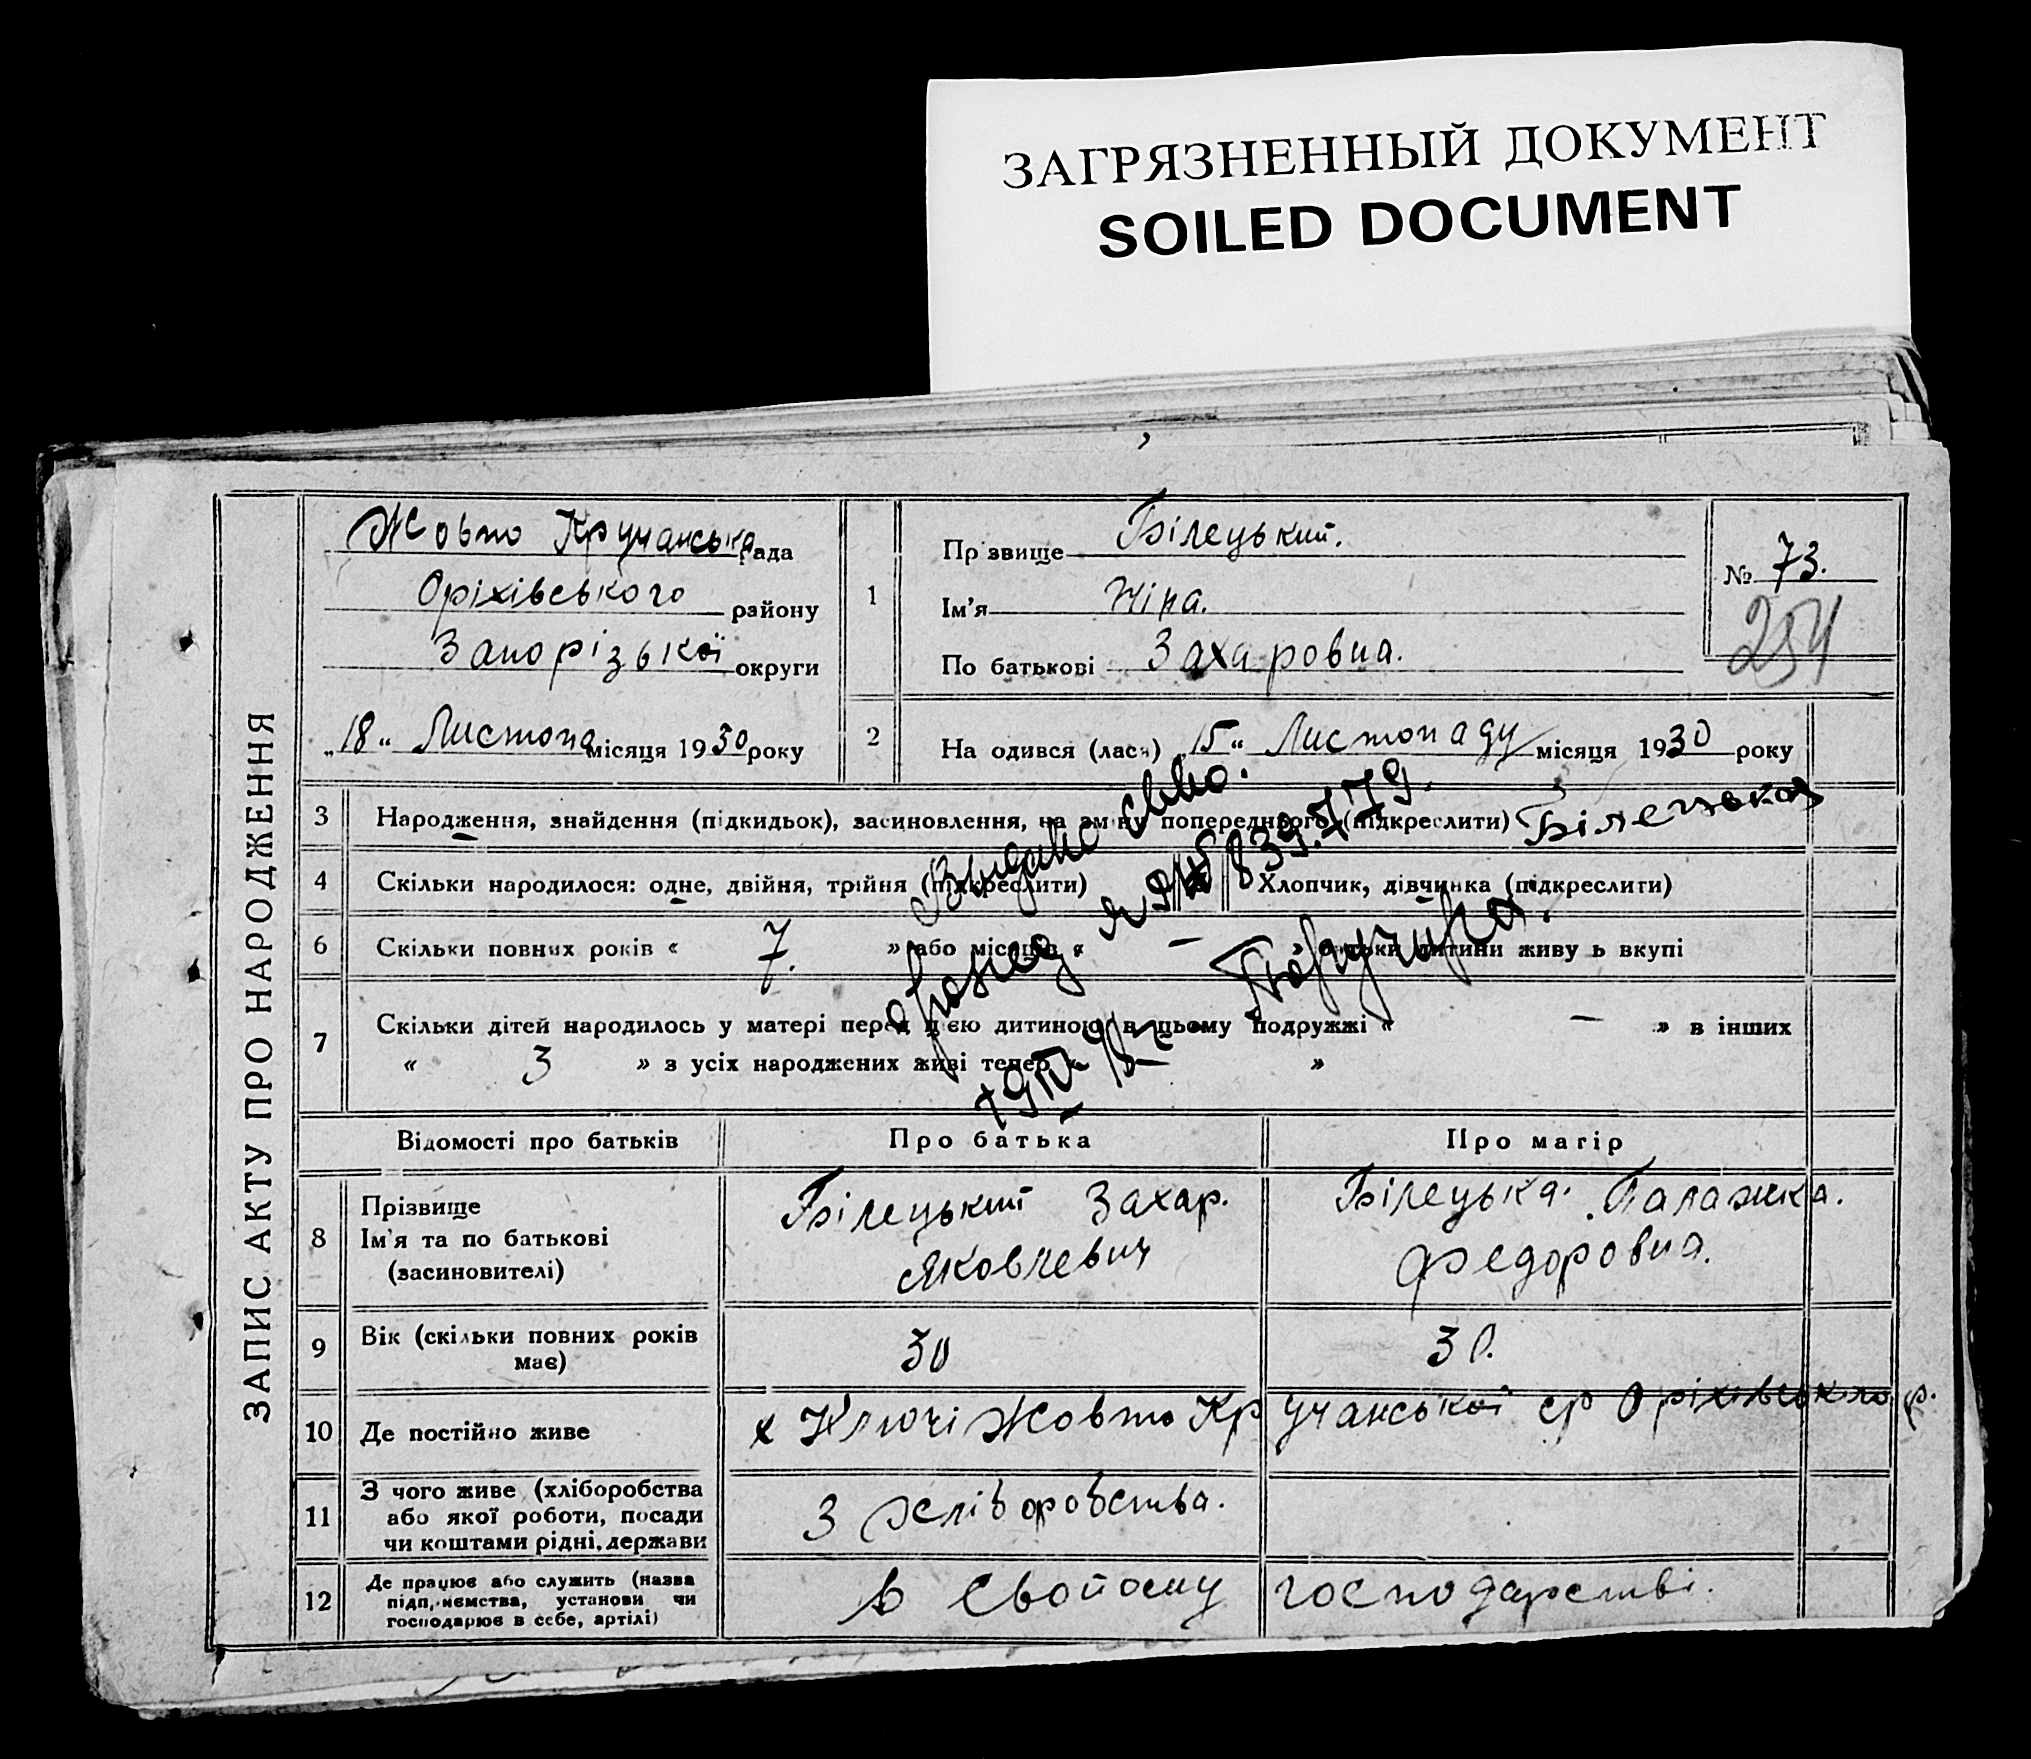 ЗАГРЯЗНЕННЫЙ ДОКУМЕНТ
SOILED DOCUMENT
ЗАПИС АКТУ ПРО НАРОДЖЕННЯ
Жовто Кручанська рада
Оріхівського району
Запорізької округи
„18“ Листопа місяця 1930 року
1
Прізвище Білецький.
Ім'я Ніна.
По батькові Захаровна.
№ 73.
254
2 На одився (лася) „15“ Листопаду місяця 1930 року
3 Народження, знайдення (підкидьок), засиновлення, на зміну попереднього (підкреслити) Білецька
4 Скільки народилося: одне, двійня, трійня (підкреслити) Хлопчик, дівчинка (підкреслити)
6 Скільки повних років « 7. » або місяців « — » батьки дитини живу ь вкупі
7 Скільки дітей народилось у матері перед цією дитиною в цьому подружжі « — » в інших
« 3 » з усіх народжених живі тепер « — »
Выдано
Відомості про батьків Про батька Про матір
8 Прізвище
Ім'я та по батькові
(засиновителі)
Білецький Захар.
Яковлевич
Білецька Палажка.
Федоровна.
9 Вік (скільки повних років
має)
30 30.
10 Де постійно живе х Ключі Жовто Кручанської ср Оріхівського р.
11 З чого живе (хліборобства
або якої роботи, посади
чи коштами рідні, держави
З хліборобства.
12 Де працює або служить (назва
підприємства, установи чи
господарює в себе, артілі)
в свойому господарстві.